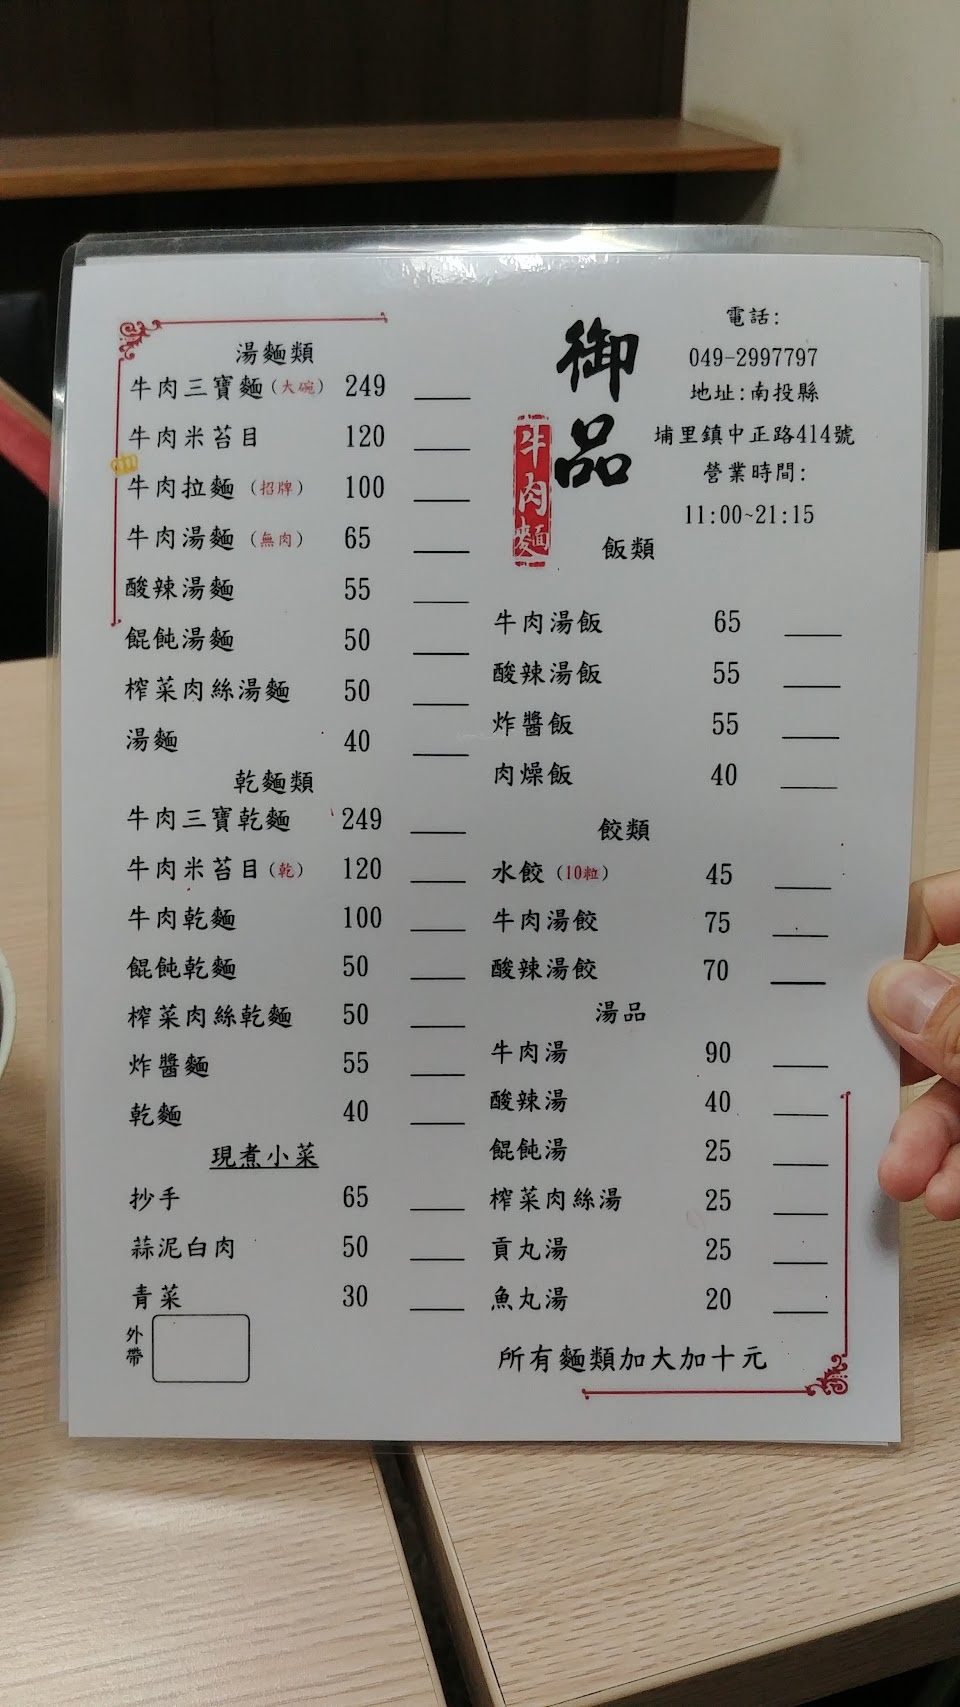 湯麵類
牛肉三寶麵(大碗) 249
牛肉米苔目 120
牛肉拉麵 (招牌) 100
牛肉湯麵 (無肉) 65
酸辣湯麵 55
餛飩湯麵 50
榨菜肉絲湯麵 50
湯麵 40
乾麵類
牛肉三寶乾麵 249
牛肉米苔目(乾) 120
牛肉乾麵 100
餛飩乾麵 50
榨菜肉絲乾麵 50
炸醬麵 55
乾麵 40
現煮小菜
抄手 65
蒜泥白肉 50
青菜 30
外帶
御品
牛肉麵
電話:
049-2997797
地址:南投縣
埔里鎮中正路414號
營業時間:
11:00~21:15
飯類
牛肉湯飯 65
酸辣湯飯 55
炸醬飯 55
肉燥飯 40
餃類
水餃(10粒) 45
牛肉湯餃 75
酸辣湯餃 70
湯品
牛肉湯 90
酸辣湯 40
餛飩湯 25
榨菜肉絲湯 25
貢丸湯 25
魚丸湯 20
所有麵類加大加十元